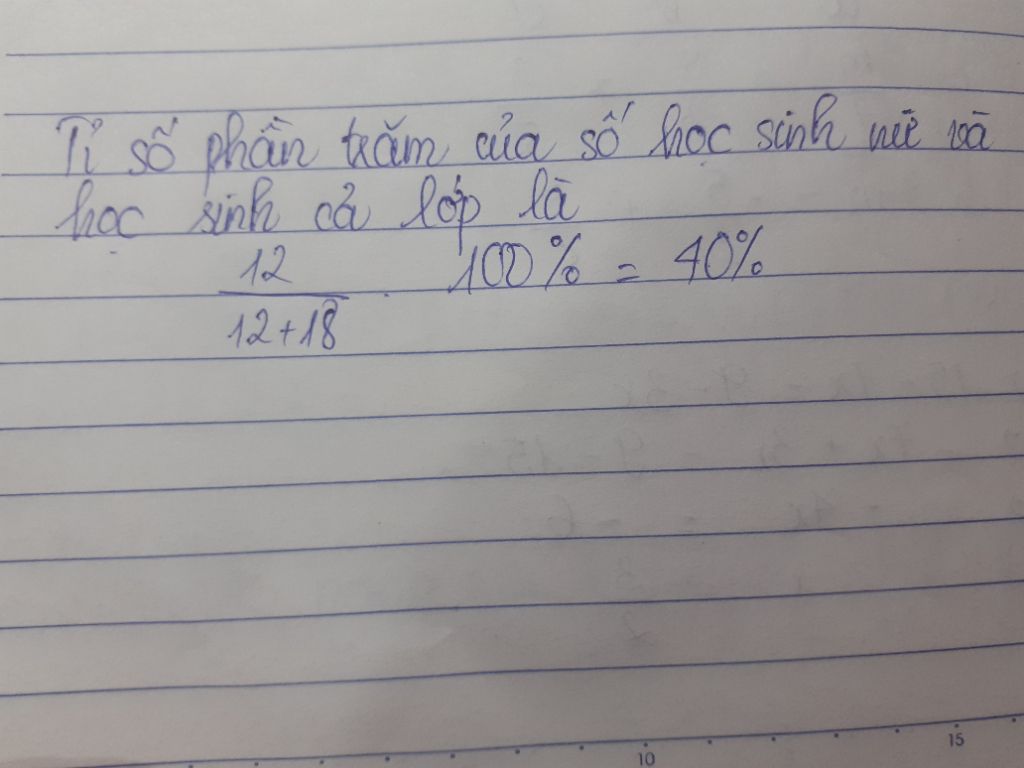 Tỉ số phần trăm của số học sinh nữ và
học sinh cả lớp là
12
12+18
. 100% = 40%
10
15